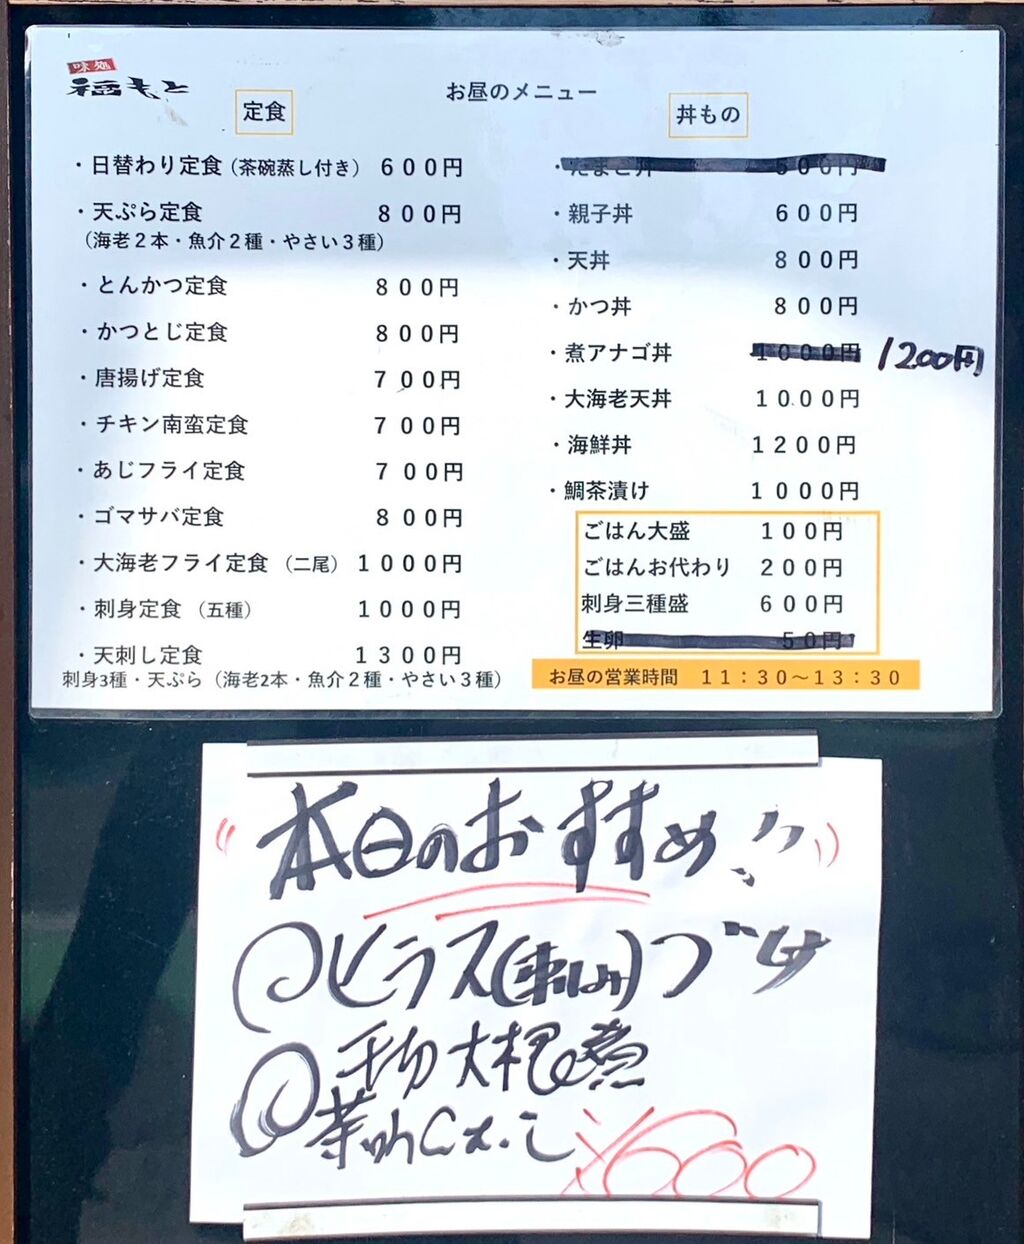 味処
福もと
お昼のメニュー
定食
・日替わり定食（茶碗蒸し付き） ６００円
・天ぷら定食 ８００円
（海老２本・魚介２種・やさい３種）
・とんかつ定食 ８００円
・かつとじ定食 ８００円
・唐揚げ定食 ７００円
・チキン南蛮定食 ７００円
・あじフライ定食 ７００円
・ゴマサバ定食 ８００円
・大海老フライ定食（二尾） １０００円
・刺身定食（五種） １０００円
・天刺し定食 １３００円
刺身3種・天ぷら（海老2本・魚介２種・やさい３種）
丼もの
・たまご丼 ５００円
・親子丼 ６００円
・天丼 ８００円
・かつ丼 ８００円
・煮アナゴ丼 １０００円 1200円
・大海老天丼 １０００円
・海鮮丼 １２００円
・鯛茶漬け １０００円
ごはん大盛 １００円
ごはんお代わり ２００円
刺身三種盛 ６００円
生卵 ５０円
お昼の営業時間 １１：３０～１３：３０
本日のおすすめ!!
ヒラス(刺身)づけ
干切大根煮
茶わんむし
¥600